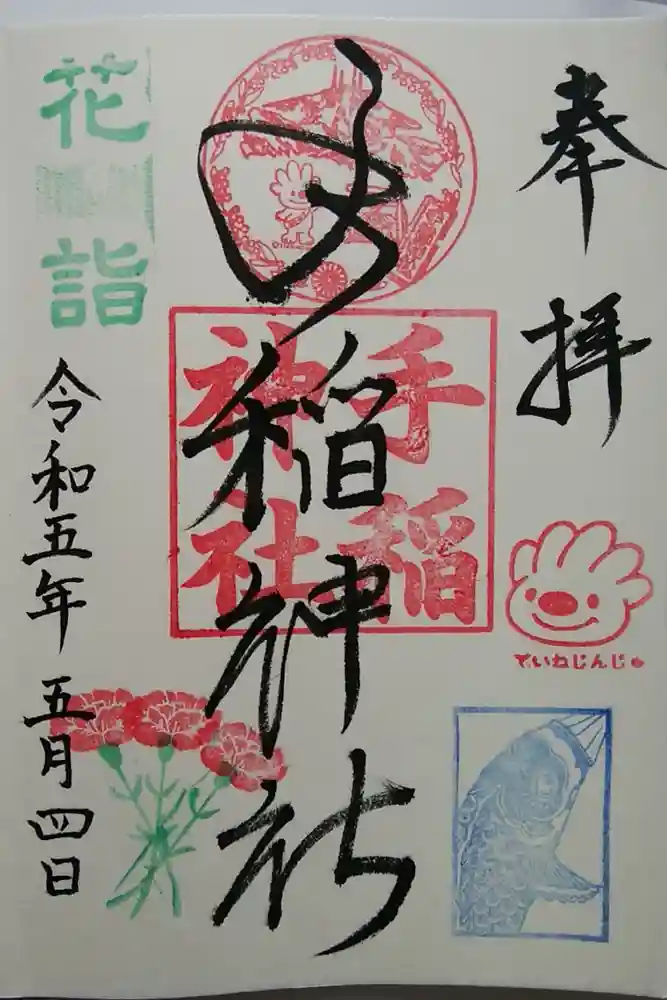 奉拝
手稲神社
手稲
神社
ていねじんじゃ
花詣
令和五年 五月四日